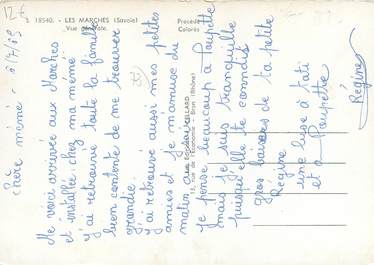 12 €
18540. - LES MARCHES (Savoie)
Vue générale.
Procédé
Colorés
Chère mémé
Me voici arrivée aux Marches
et installée chez ma mémé
j'ai retrouvé toute la famille
bien contente de me trouver
grandie.
j'ai retrouvé aussi mes petites
amies et je m'amuse du
matin au
je pense beaucoup à Poupette
mais je suis tranquille
puisqu'elle te connait
gros baisers de ta petite
Régine
une bise à tati
et à Poupette
Régine
CELLARD
15, rue de l'Economie - Bron (Rhône)